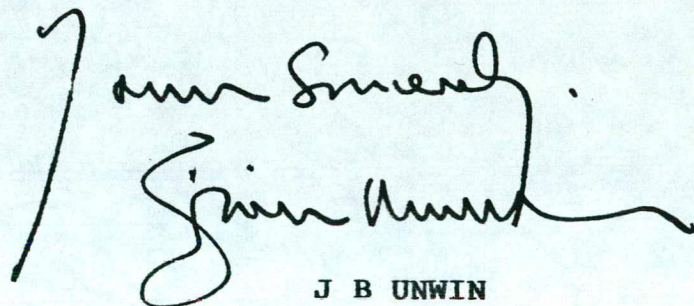 Yours Sincerely.
Brian Unwin
J B UNWIN